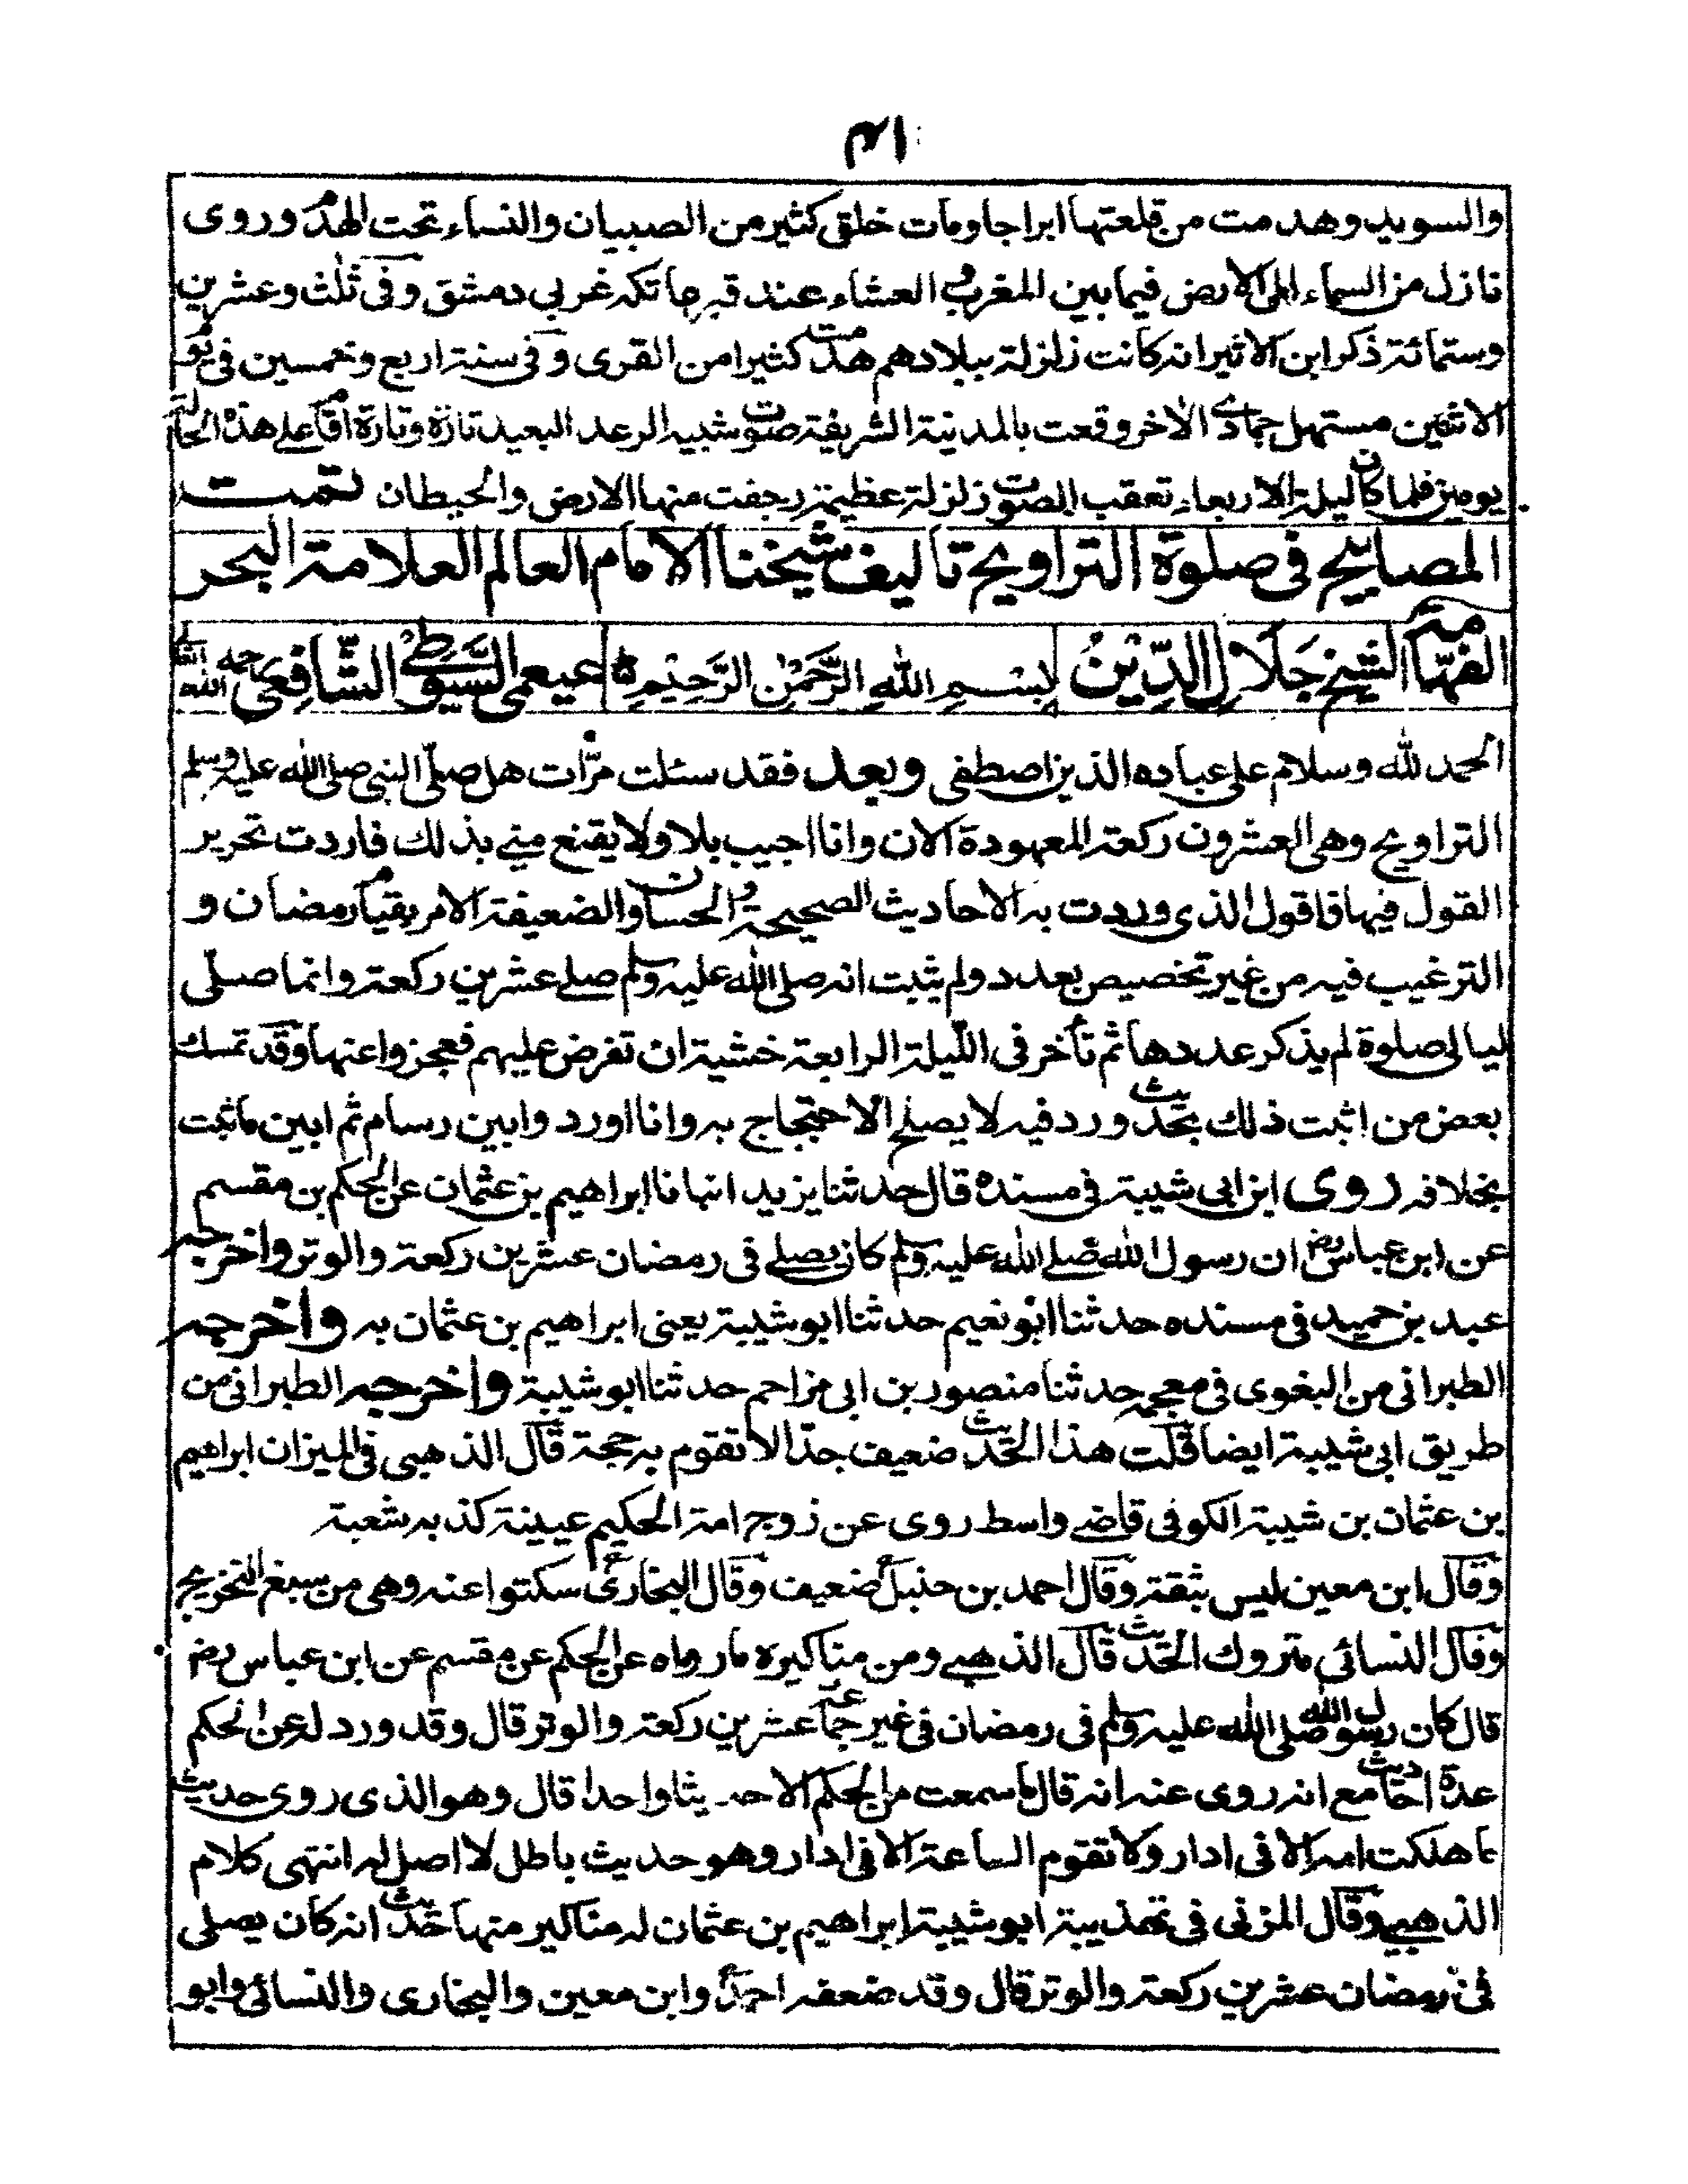 ١٣
والسويد وهدمت من قلعتها ابراجا ومات خلق كثير من الصبيان والنساء تحت الهدم وروى
نازل من السماء الى الارض فيما بين المغرب و العشاء عند قبر عاتكه غربي دمشق وفى ثلث وعشرين
وستمائة ذكر ابن الاثير انه كانت زلزلة ببلادهم هدمت كثيرا من القرى وفى سنة اربع وخمسين فى يوم
الاثنين مستهل جمادى الاخر وقعت بالمدينة الشريفة صوت شبيه الرعد البعيد تارة وتارة اقام على هذه الحالة
يومين فلما كان ليلة الاربعاء تعقب الصوت زلزلة عظيمة رجفت منها الارض والحيطان تمت
المصابيح فى صلوة التراويح تاليف شيخنا الامام العالم العلامة البحر
الفهامة الشيخ جلال الدين بسم الله الرحمن الرحيم السيوطى الشافعى رحمه الله
الحمد لله وسلام على عباده الذين اصطفى وبعد فقد سئلت مرّات هل صلّى النبى صلى الله عليه وسلم
التراويح وهى العشرون ركعة المعهودة الان وانا اجيب بلا ولا يقنع منى بذلك فاردت تحرير
القول فيها فاقول الذى وردت به الاحاديث الصحيحة و الحسان والضعيفة الامر بقيام رمضان و
الترغيب فيه من غير تخصيص بعدد ولم يثبت انه صلى الله عليه وسلم صلے عشرين ركعة وانما صلّى
ليالى صلوة لم يذكر عددها ثم تأخر فى اللّيلة الرابعة خشية ان تفرض عليهم فعجزوا عنها وقد تمسك
بعض من اثبت ذلك بحديث ورد فيه لا يصلح الاحتجاج به وانا اورد وابين رسام ثم ابين ما ثبت
بخلافه روى ابن ابى شيبة فى مسنده قال حدثنا يزيد انبانا ابراهيم بن عثمان عن الحكم بن مقسم
عن ابن عباس رض ان رسول الله صلے الله عليه وسلم كان يصلے فى رمضان عشرين ركعة والوتر واخرجه
عبد بن حميد فى مسنده حدثنا ابو نعيم حدثنا ابو شيبة يعنى ابراهيم بن عثمان به واخرجه
الطبرانى من البغوى فى معجمه حدثنا منصور بن ابى مزاحم حدثنا ابو شيبة واخرجه الطبرانى من
طريق ابى شيبة ايضا قلت هذا الحديث ضعيف جدّا لا تقوم به حجة قال الذهبى فى الميزان ابراهيم
بن عثمان بن شيبة الكوفى قاضے واسط روى عن زوج امة الحكيم عيينة كذبه شعبة
وقال ابن معين ليس بثقة وقال احمد بن حنبل ضعيف وقال البخارى سكتوا عنه وهى من سبغ التخريج
وقال النسائى متروك الحديث قال الذهبے ومن مناكيره ما رواه عن الحكم عن مقسم عن ابن عباس رض
قال كان رسول الله صلى الله عليه وسلم فى رمضان فى غير جماعة عشرين ركعة والوتر قال وقد ورد له عن الحكم
عدة احاديث مع انه روى عنه انه قال ما سمعت من الحكم الا حديثا واحدا قال وهو الذى روى حديث
ما هلكت امة الا فى ادار ولا تقوم الساعة الا فى ادار وهو حديث باطل لا اصل له انتهى كلام
الذهبے وقال المزنى فى تهذيبه ابو شيبة ابراهيم بن عثمان له مناكير منها حديث انه كان يصلى
فى رمضان عشرين ركعة والوتر قال وقد ضعفه احمد وابن معين والبخارى والنسائى وابو